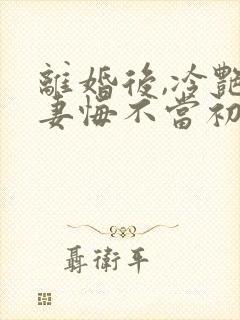 離婚後,冷艷
妻悔不當初
聶衛平